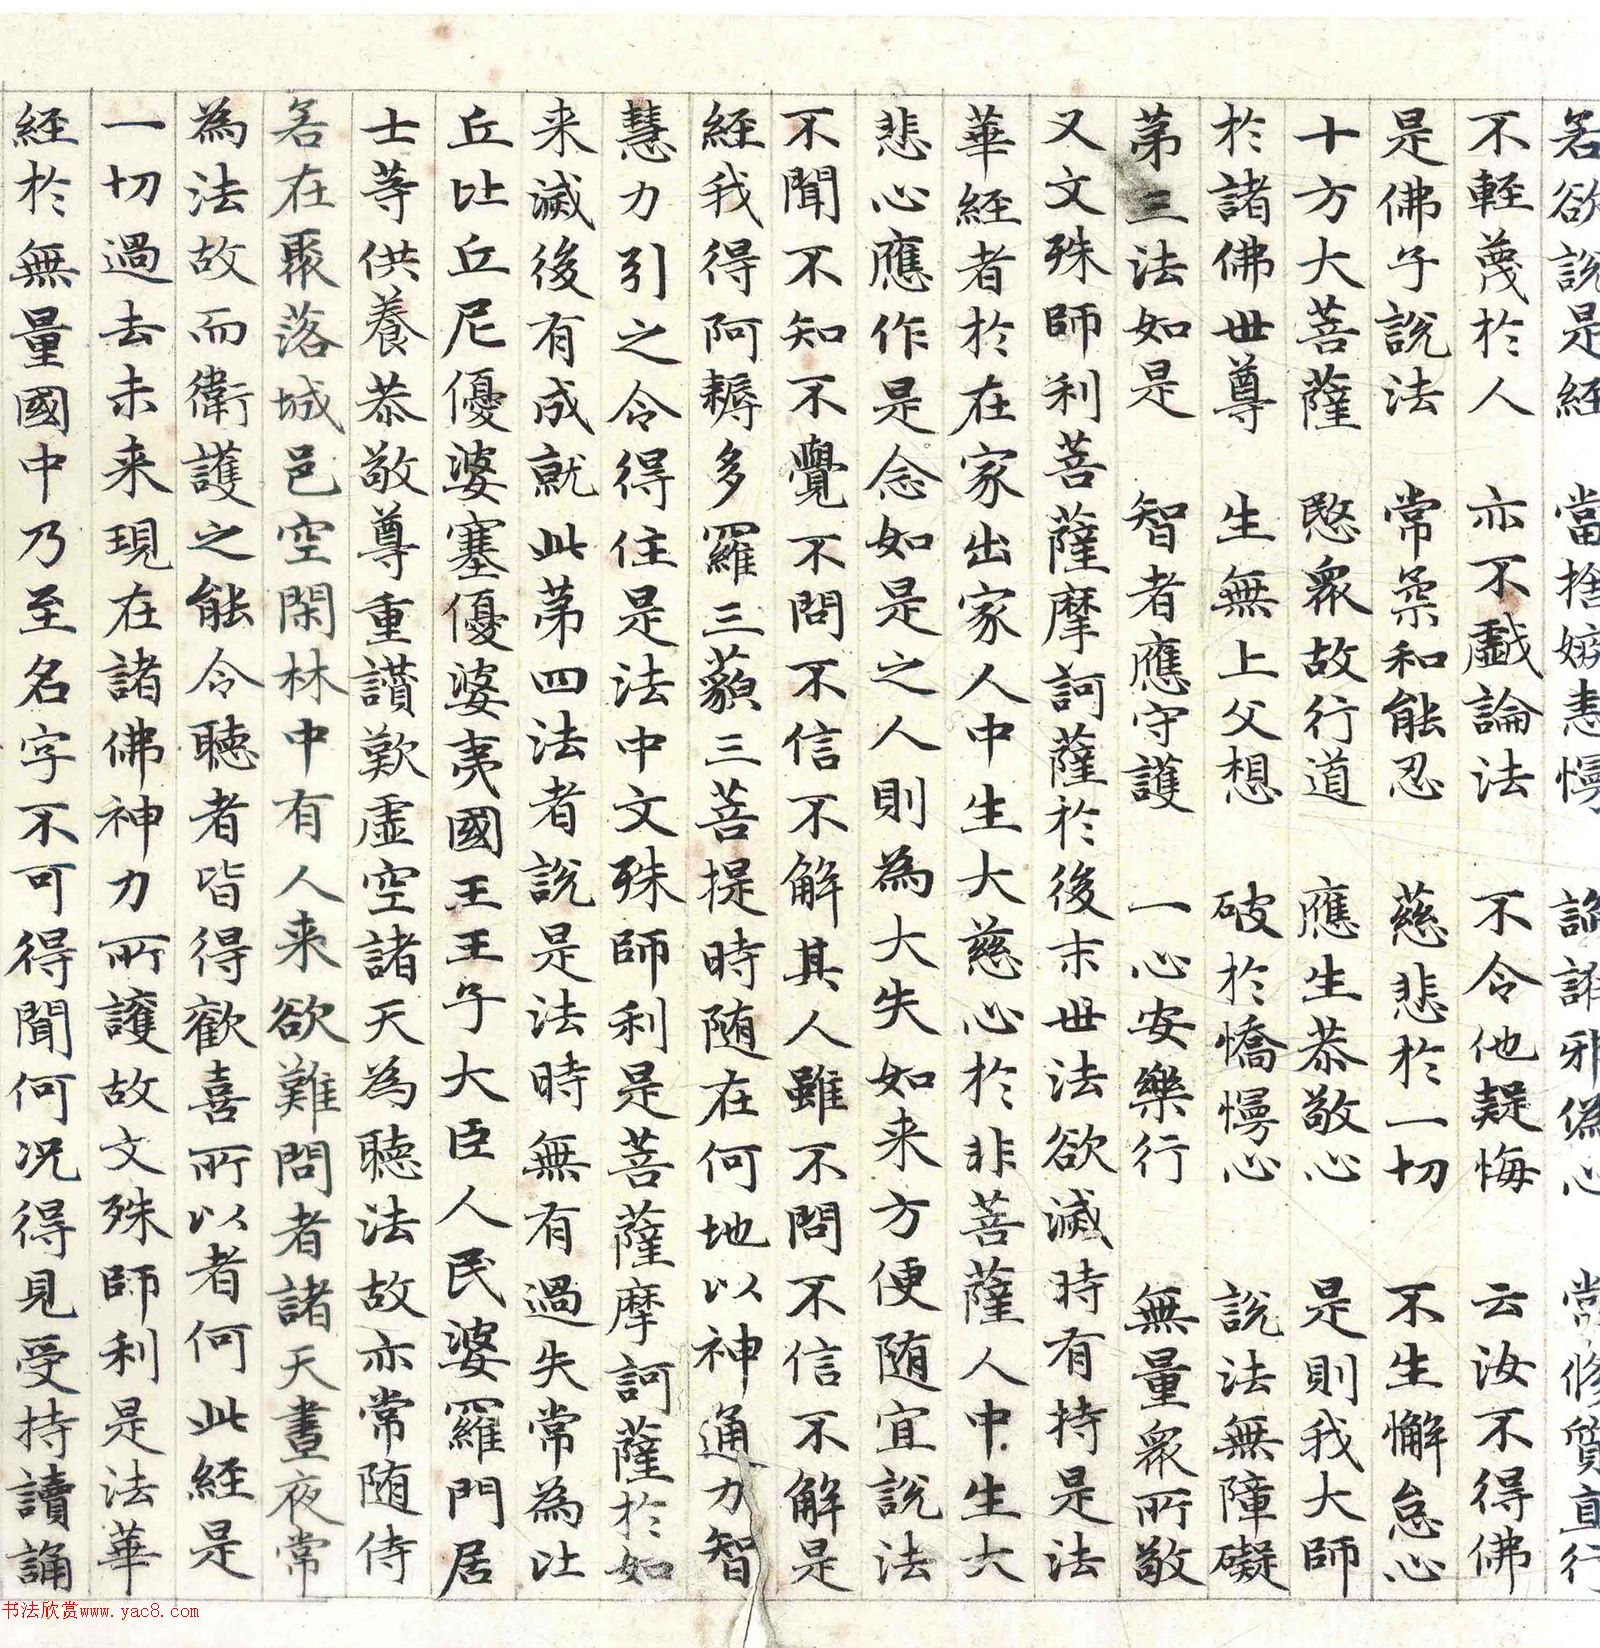 若欲說是經 當捨嫉恚慢 諂誑邪偽心 常修質直行
不輕蔑於人 亦不戲論法 不令他疑悔 云汝不得佛
是佛子說法 常柔和能忍 慈悲於一切 不生懈怠心
十方大菩薩 愍眾故行道 應生恭敬心 是則我大師
於諸佛世尊 生無上父想 破於憍慢心 說法無障礙
第三法如是 智者應守護 一心安樂行 無量眾所敬
又文殊師利菩薩摩訶薩於後末世法欲滅時有持是法
華經者於在家出家人中生大慈心於非菩薩人中生大
悲心應作是念如是之人則為大失如来方便随宜說法
不聞不知不覺不問不信不解其人雖不問不信不解是
經我得阿耨多羅三藐三菩提時随在何地以神通力智
慧力引之令得住是法中文殊師利是菩薩摩訶薩於如
来滅後有成就此第四法者說是法時無有過失常為比
丘比丘尼優婆塞優婆夷國王王子大臣人民婆羅門居
士等供養恭敬尊重讃歎虛空諸天為聽法故亦常随侍
若在聚落城邑空閑林中有人来欲難問者諸天晝夜常
為法故而衛護之能令聽者皆得歡喜所以者何此經是
一切過去未来現在諸佛神力所護故文殊師利是法華
經於無量國中乃至名字不可得聞何況得見受持讀誦
书法欣赏www.yac8.com